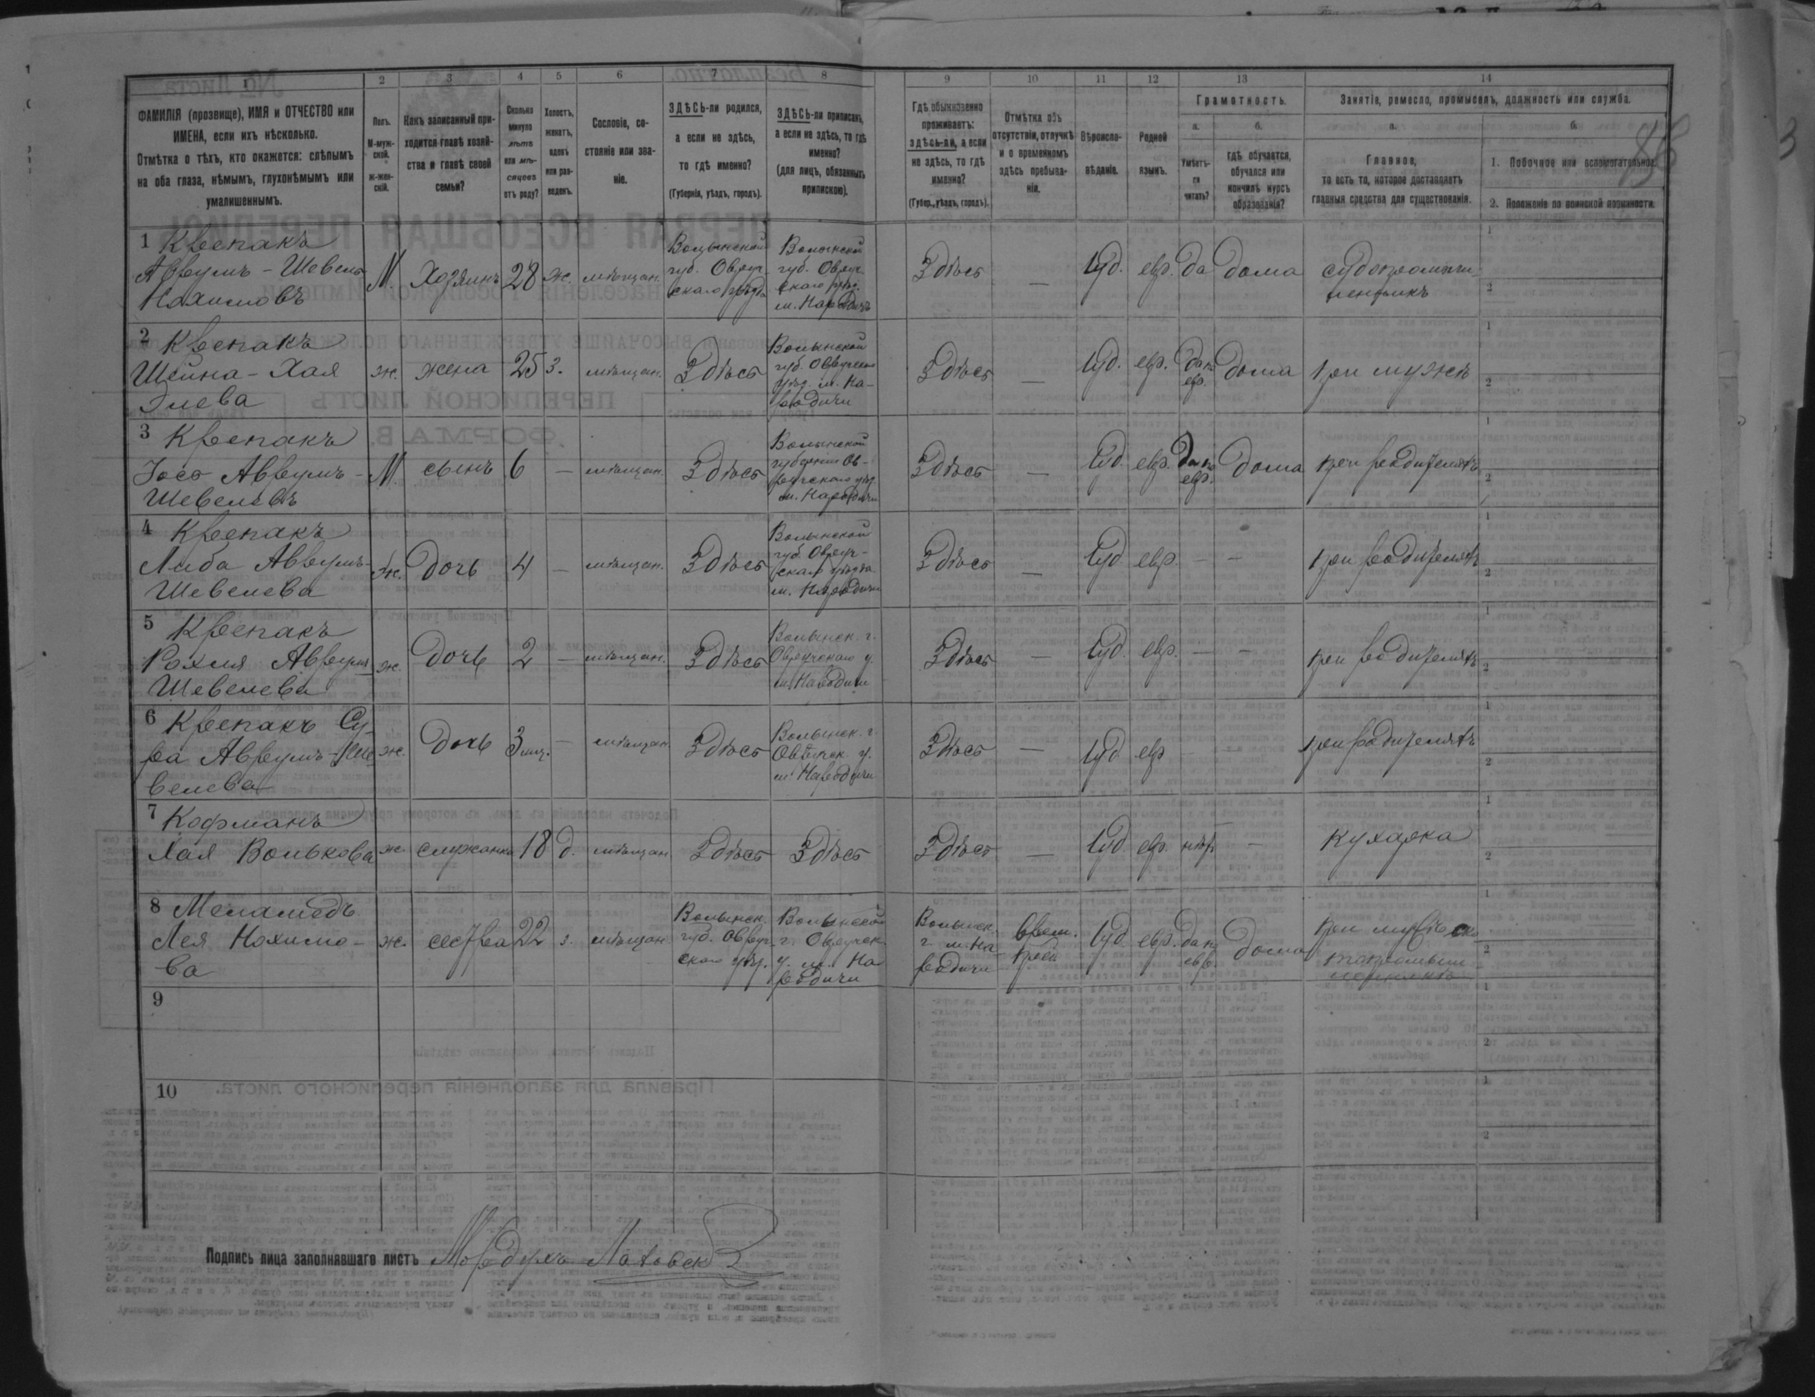 1 2 3 4 5 6 7 8 9 10 11 12 13 14
ФАМИЛІЯ (прозвище), ИМЯ и ОТЧЕСТВО или
ИМЕНА, если ихъ нѣсколько.
Отмѣтка о тѣхъ, кто окажется: слѣпымъ
на оба глаза, нѣмымъ, глухонѣмымъ или
умалишеннымъ.
Полъ.
М-муж-
ской.
ж-жен-
скій.
Какъ записанный при-
ходится главѣ хозяй-
ства и главѣ своей
семьи?
Сколько
минуло
лѣтъ
или мѣ-
сяцевъ
отъ роду?
Холостъ,
женатъ,
вдовъ
или раз-
веденъ.
Сословіе, со-
стояніе или зва-
ніе.
ЗДѢСЬ-ли родился,
а если не здѣсь,
то гдѣ именно?
(Губернія, уѣздъ, городъ).
ЗДѢСЬ-ли приписанъ,
а если не здѣсь, то гдѣ
именно?
(для лицъ, обязанныхъ
припискою).
Гдѣ обыкновенно
проживаетъ:
здѣсь-ли, а если
не здѣсь, то гдѣ
именно?
(Губер., уѣздъ, городъ).
Отмѣтка объ
отсутствіи, отлучкѣ
и о временномъ
здѣсь пребыва-
ніи.
Вѣроиспо-
вѣданіе.
Родной
языкъ.
Грамотность.
а.
Умѣетъ-
ли
читать?
б.
гдѣ обучается,
обучался или
кончилъ курсъ
образованія?
Занятіе, ремесло, промыселъ, должность или служба.
а.
Главное,
то есть то, которое доставляетъ
главныя средства для существованія.
б.
1. Побочное или вспомогательное.
2. Положеніе по воинской повинности.
1 Крепакъ
Аврумъ-Шевель
Нахимовъ
М. Хозяинъ 28 ж. мѣщан.
Волынской
губ. Овруч-
скаго уѣзда
Волынской
губ. Овруч-
скаго уѣзд.
м. Народичи
Здѣсь — Іуд. евр. да дома
2 Крепакъ
Шейна-Хая
ж. жена 25 з. мѣщан. Здѣсь
Волынской
губ. Овручскаго
уѣз. м. На-
родичи
Здѣсь — Іуд. евр. да по
евр. дома при мужѣ
3 Крепакъ
Іосъ Аврумъ-
Шевелевъ
М сынъ 6 — мѣщан. Здѣсь
Волынской
губерніи Ов-
ручскаго уѣз.
м. Народичи
Здѣсь — Іуд. евр. да по
евр. дома при родителяхъ
4 Крепакъ
Либа Аврумъ-
Шевелева
ж. дочь 4 — мѣщан. Здѣсь
Волынской
губ. Овруч-
скаго уѣзда
м. Народичи
Здѣсь — Іуд евр. — — при родителяхъ
5 Крепакъ
Рахля Аврумъ-
Шевелева
ж. дочь 2 — мѣщан. Здѣсь
Волынск. г.
Овручскаго у.
м. Народичи
Здѣсь — Іуд. евр. — — при родителяхъ
6 Крепакъ Су-
ра Аврумъ-Ше-
велева
ж. дочь 3 мѣс. — мѣщан Здѣсь
Волынск. г.
Овручск у.
м. Народичи
Здѣсь — Іуд евр при родителяхъ
7 Кофманъ
Хая Волькова
ж служанка 18 д. мѣщан Здѣсь Здѣсь
Здѣсь — Іуд евр. нѣт — кухарка
8 Меламедъ
Лея Нохимо-
ва
ж. сестра 22 з. мѣщан
Волынск.
губ. Овруч-
скаго уѣз.
Волынской
г. Овручск
у. м. На
родичи
Волынск.
г м. На
родичи
Врем.
преб. Іуд евр. да по
евр. дома
9
10
Подпись лица заполнявшаго листъ Мордухъ